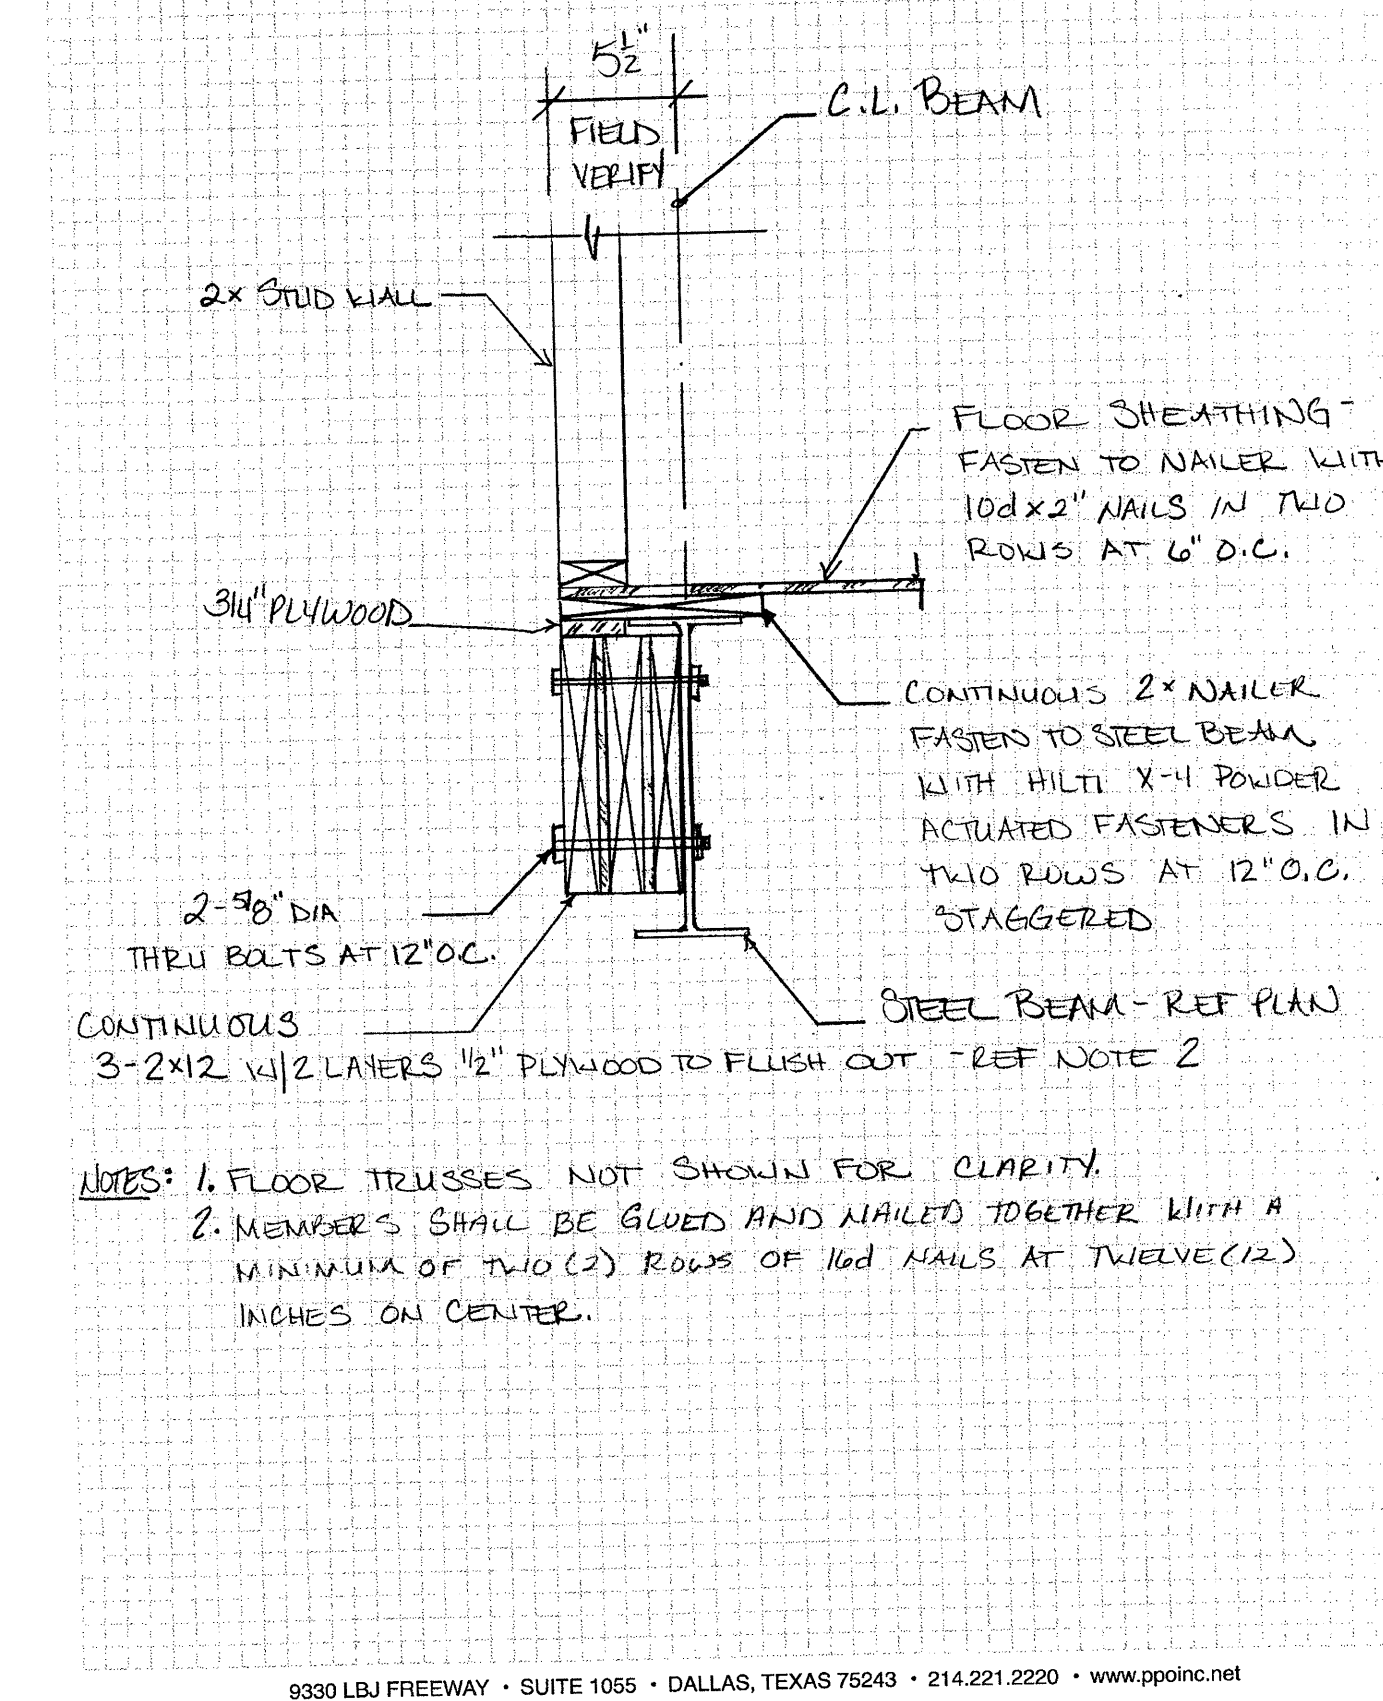 5 1/2"
FIELD
VERIFY
C.L. BEAM
2x STUD WALL
FLOOR SHEATHING -
FASTEN TO NAILER WITH
10d x 2" NAILS IN TWO
ROWS AT 6" O.C.
3/4" PLYWOOD
CONTINUOUS 2x NAILER
FASTEN TO STEEL BEAM
WITH HILTI X-4 POWDER
ACTUATED FASTENERS IN
TWO ROWS AT 12" O.C.
STAGGERED
2-5/8" DIA
THRU BOLTS AT 12" O.C.
STEEL BEAM - REF PLAN
CONTINUOUS
3-2x12 W/2 LAYERS 1/2" PLYWOOD TO FLUSH OUT - REF NOTE 2
NOTES: 1. FLOOR TRUSSES NOT SHOWN FOR CLARITY.
2. MEMBERS SHALL BE GLUED AND NAILED TOGETHER WITH A
MINIMUM OF TWO (2) ROWS OF 16d NAILS AT TWELVE (12)
INCHES ON CENTER.
9330 LBJ FREEWAY • SUITE 1055 • DALLAS, TEXAS 75243 • 214.221.2220 • www.ppoinc.net